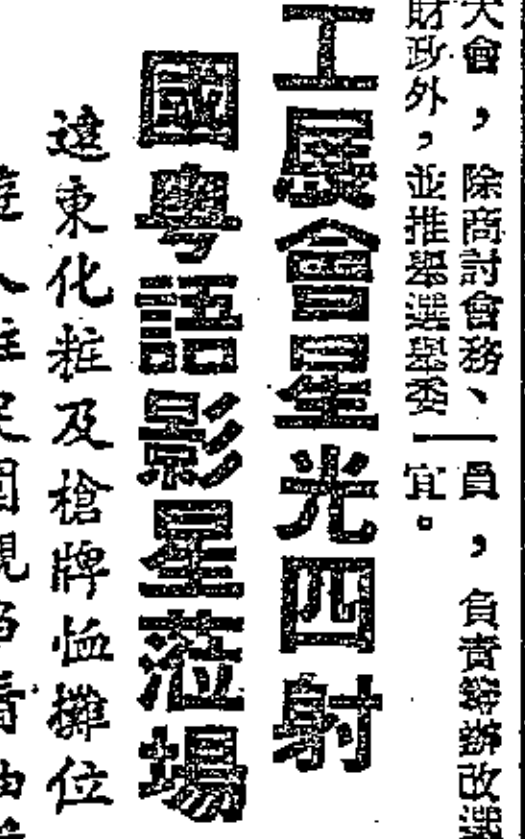 大會，除商討會務、
財政外，並推舉選舉委
員，負責籌辦改選
宜。
工展會星光四射
國粵語影星蒞場
遠東化粧及槍牌恤攤位